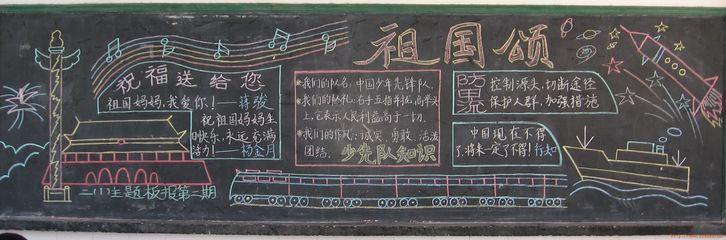 祖国颂
祝福送给您
祖国妈妈,我爱你!——蒋骏
祝祖国妈妈生
日快乐,永远充满
活力!——杨金月
二(1)主题板报第二期
★我们的队名:中国少年先锋队。
★我们的队礼:右手五指并拢,高举头
上,它表示人民利益高于一切。
★我们的作风:诚实、勇敢、活泼、
团结。
少先队知识
防甲流
控制源头,切断途径
保护人群,加强措施
中国现在不得
了,将来一定了不得!行知